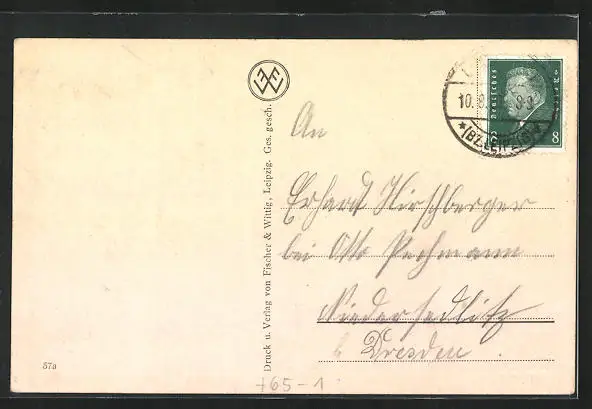 Deutsches Reich
8
10.8. 8-9
*(BZ. LEIPZIG)*
An
Erhard Hirschberger
bei Otto Pechmann
Niedersedlitz
b. Dresden.
Druck u. Verlag von Fischer & Wittig, Leipzig- Ges. gesch.
57a
+65-1